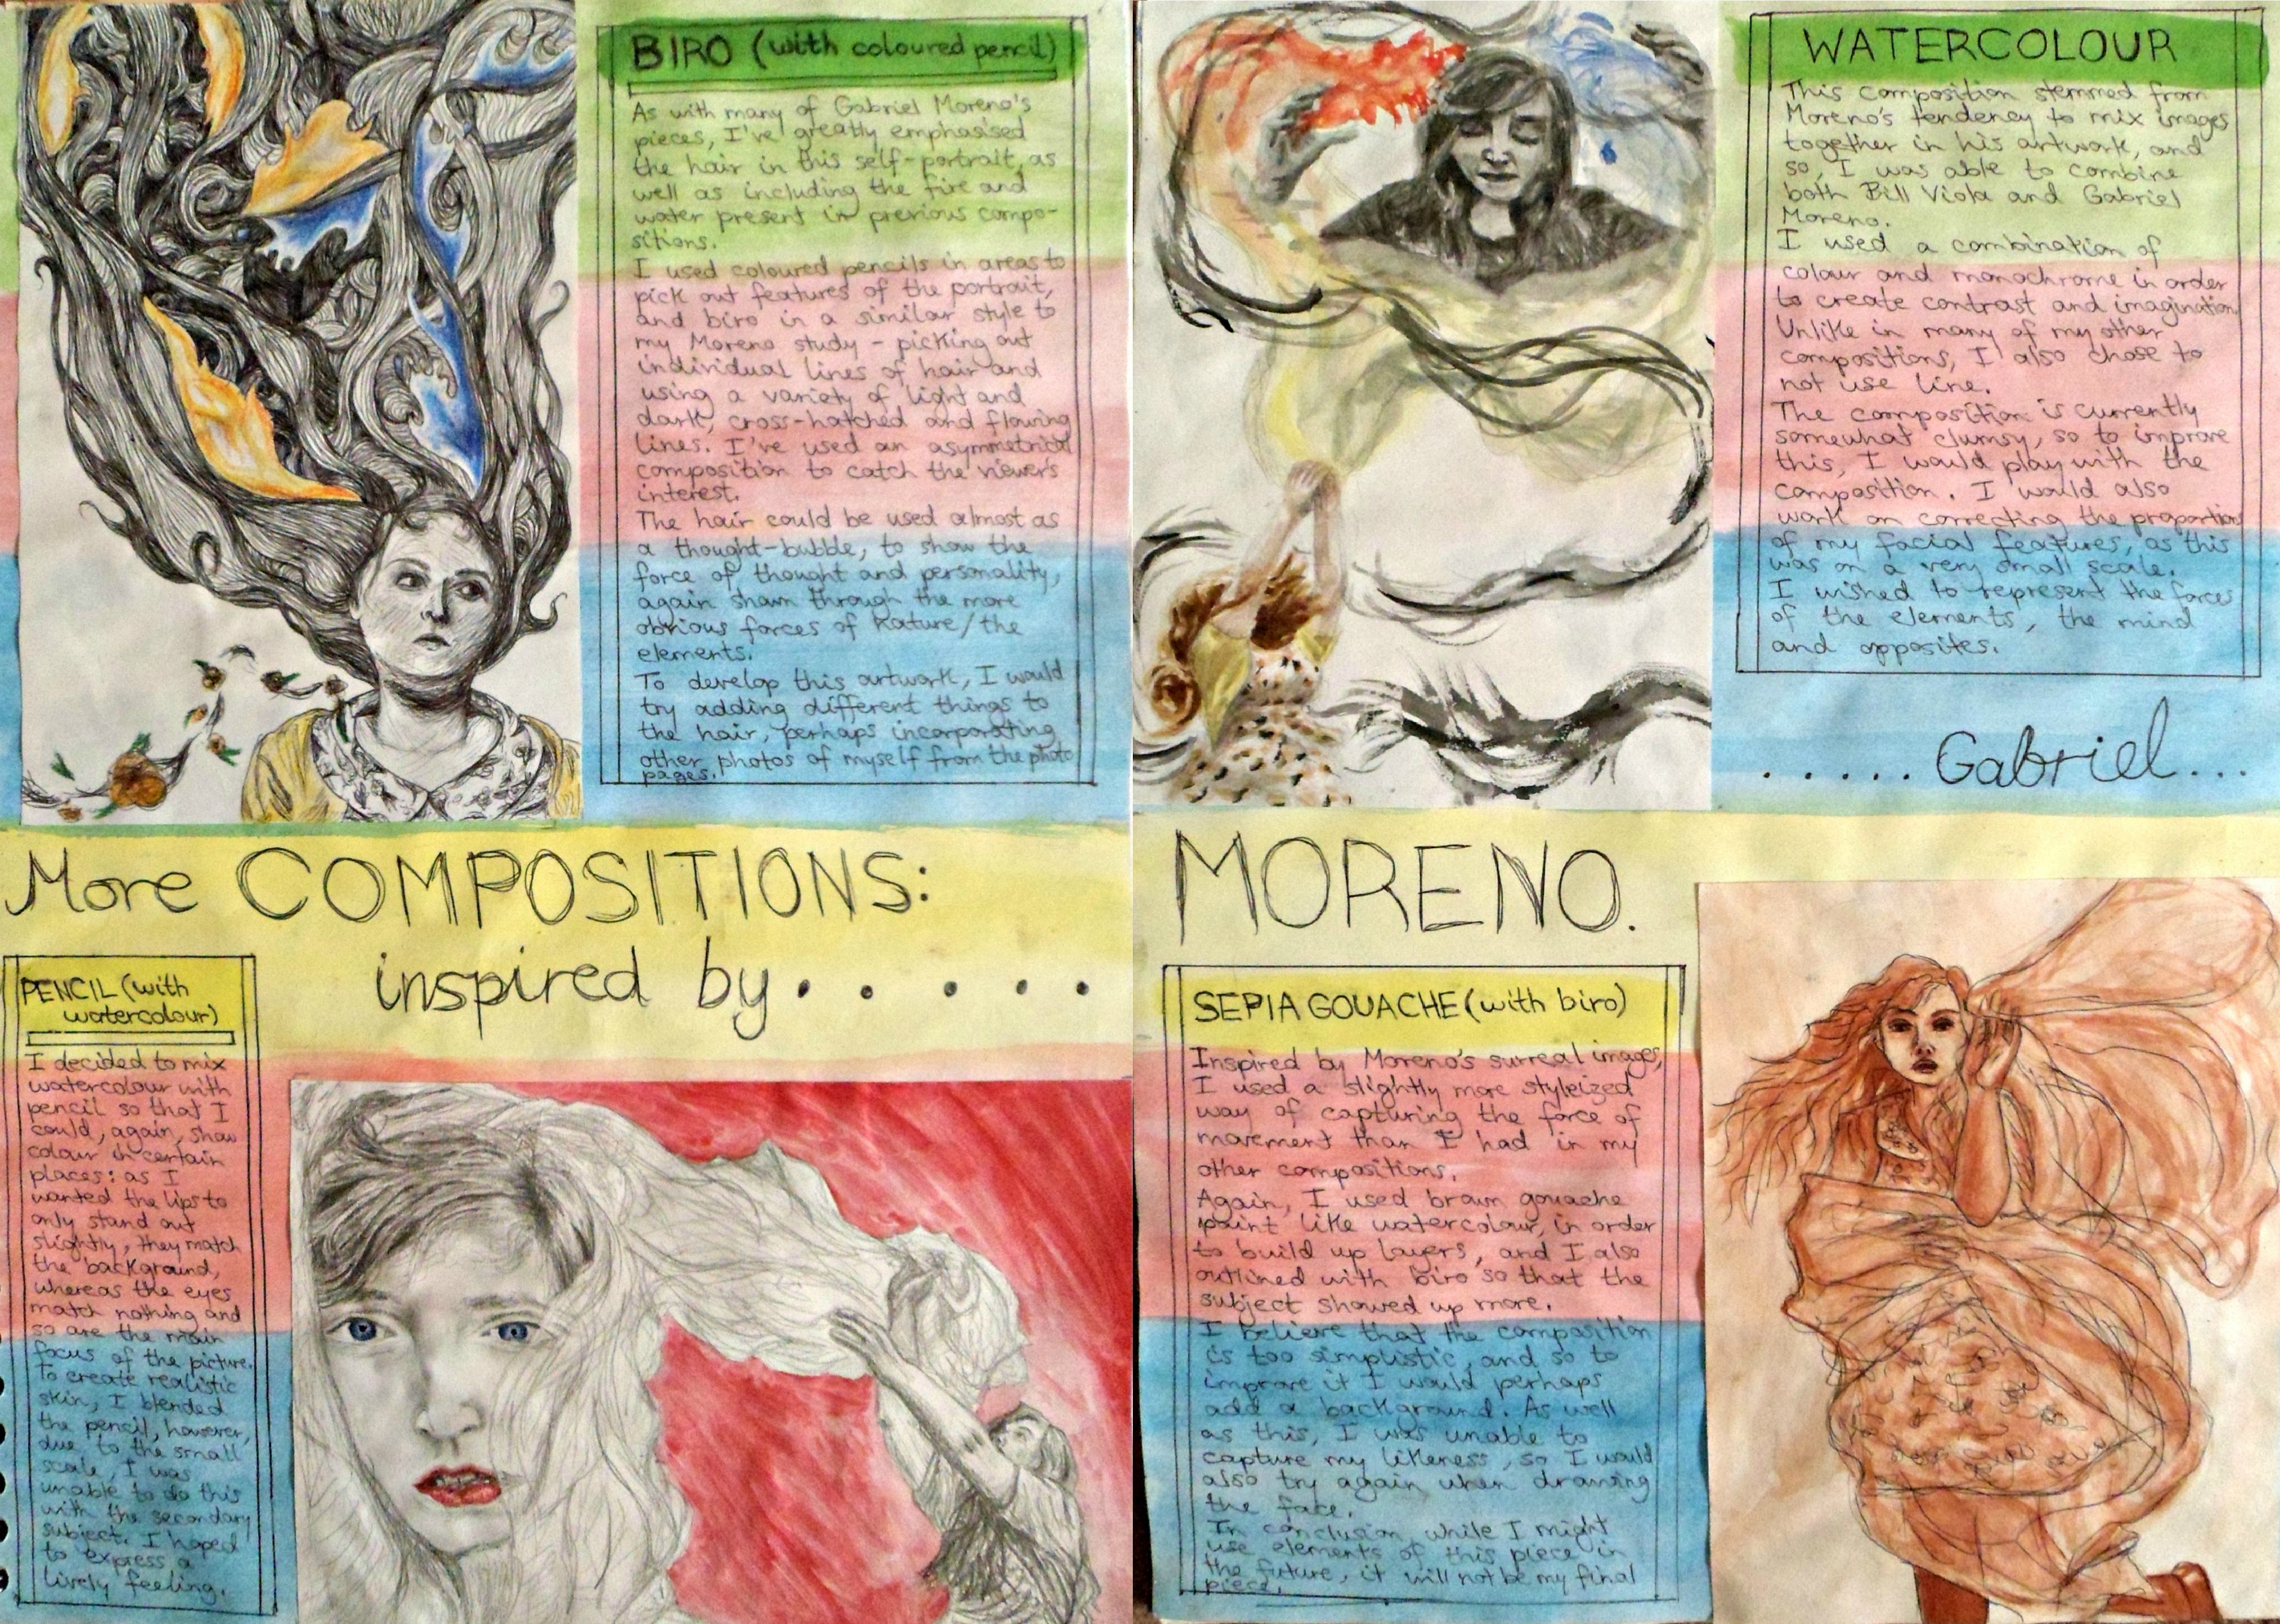 BIRO (with coloured pencil)
As with many of Gabriel Moreno's
pieces, I've greatly emphasised
the hair in this self-portrait, as
well as including the fire and
water present in previous compo-
sitions.
I used coloured pencils in areas to
pick out features of the portrait,
and biro in a similar style to
my Moreno study - picking out
individual lines of hair and
using a variety of light and
dark, cross-hatched and flowing
lines. I've used an asymmetrical
composition to catch the viewer's
interest.
The hair could be used almost as
a thought-bubble, to show the
force of thought and personality,
again shown through the more
obvious forces of Nature/the
elements.
To develop this artwork, I would
try adding different things to
the hair, perhaps incorporating
other photos of myself from the photo
pages.
WATERCOLOUR
This composition stemmed from
Moreno's tendency to mix images
together in his artwork, and
so, I was able to combine
both Bill Viola and Gabriel
Moreno.
I used a combination of
colour and monochrome in order
to create contrast and imagination
Unlike in many of my other
compositions, I also chose to
not use line.
The composition is currently
somewhat clumsy, so to improve
this, I would play with the
composition. I would also
work on correcting the proportions
of my facial features, as this
was on a very small scale.
I wished to represent the forces
of the elements, the mind
and opposites.
More COMPOSITIONS:
inspired by . . . . .
. . . . . . Gabriel . . .
MORENO.
PENCIL (with
watercolour)
I decided to mix
watercolour with
pencil so that I
could, again, show
colour in certain
places: as I
wanted the lips to
only stand out
slightly, they match
the background,
whereas the eyes
match nothing and
so are the main
focus of the picture.
To create realistic
skin, I blended
the pencil, however,
due to the small
scale, I was
unable to do this
with the secondary
subject. I hoped
to express a
lively feeling.
SEPIA GOUACHE (with biro)
Inspired by Moreno's surreal images,
I used a slightly more styleized
way of capturing the force of
movement than I had in my
other compositions.
Again, I used brown gouache
paint like watercolour, in order
to build up layers, and I also
outlined with biro so that the
subject showed up more.
I believe that the composition
is too simplistic, and so to
improve it I would perhaps
add a background. As well
as this, I was unable to
capture my likeness, so I would
also try again when drawing
the face.
In conclusion, while I might
use elements of this piece in
the future, it will not be my final
piece.